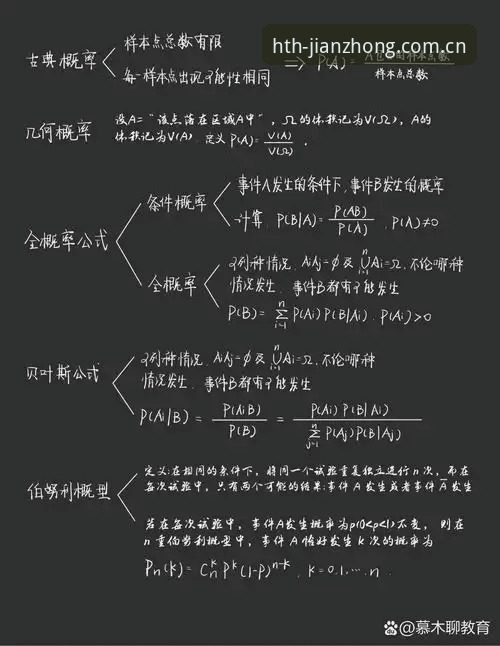 hth-jianzhong.com.cn
古典概率
样本点总数有限
每一样本点出现可能性相同 ⟹ P(A) = 样本点数 / 样本点总数
几何概率
设A="该点落在区域A中", Ω的体积记为V(Ω), A的
体积记为V(A) 定义 P(A) = V(A) / V(Ω) .
全概率公式
条件概率
事件A发生的条件下,事件B发生的概率
计算, P(B|A) = P(AB) / P(A) , P(A)≠0
全概率
n种情况, AiAj=∅及⋃_{i=1}^{n}Ai=Ω, 不论哪种
情况发生, 事件B都有可能发生
P(B) = ∑_{i=1}^{n} P(Ai)P(B|Ai) , P(Ai)>0
贝叶斯公式
n种情况, AiAj=∅及⋃_{i=1}^{n}Ai=Ω, 不论哪种
情况发生, 事件B都有可能发生
P(Ai|B) = P(AiB) / P(B) = P(Ai)P(B|Ai) / ∑_{j=1}^{n} P(Aj)P(B|Aj)
伯努利概型
定义:在相同的条件下, 将同一个试验重复独立进行n次, 而在
每次试验中, 只有两个可能的结果:事件A发生或者事件A̅发生
若在每次试验中, 事件A发生概率为p(0<p<1)不变, 则在
n重伯努利概型中, 事件A恰好发生k次的概率为
Pn(k) = C_n^k P^k (1-P)^{n-k} , k=0,1,…,n .
@慕木聊教育